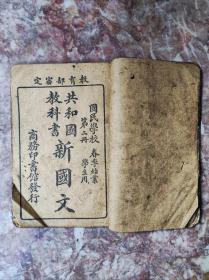 教育部審定
國民學校 春季始業
第二冊 學生用
共和國
教科書
新國文
商務印書館發行